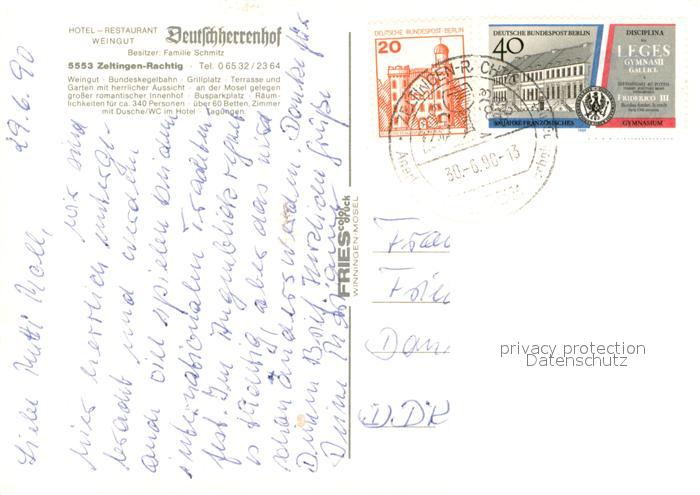 HOTEL – RESTAURANT
WEINGUT
Deutschherrenhof
Besitzer: Familie Schmitz
5553 Zeltingen-Rachtig · Tel. 0 65 32 / 23 64
Weingut · Bundeskegelbahn · Grillplatz · Terrasse und
Garten mit herrlicher Aussicht · an der Mosel gelegen
großer romantischer Innenhof · Busparkplatz · Räum-
lichkeiten für ca. 340 Personen · über 60 Betten, Zimmer
mit Dusche/WC im Hotel · Tagungen.
29.6.90
Liebe Mutti
wir sind
hier herrlich unterge-
bracht und werden
und viel spielen bei dem
internationalen
fest. Im Augenblick regnet
es ständig, aber das wird
schon anders werden. Danke für
Deinen Brief. Herzliche Grüße
Deine
FRIES color druck
WINNINGEN-MOSEL
DEUTSCHE BUNDESPOST BERLIN
20
DEUTSCHE BUNDESPOST BERLIN
40
300 JAHRE FRANZÖSISCHES
GYMNASIUM
DISCIPLINA
LEGES
GYMNASII
GALLICI
FRIDERICO III
30.-6.90-13
Frau
D.DR
privacy protection
Datenschutz